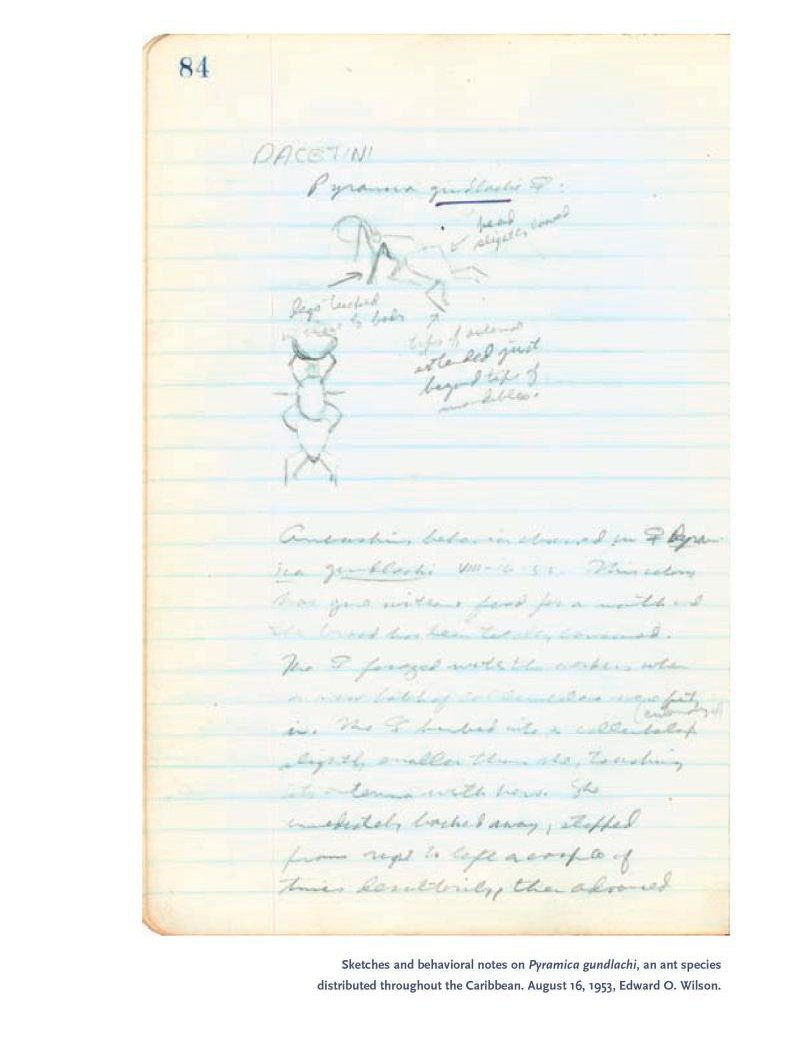 84
DACETINI
Pyramica gundlachi ♀:
head
slightly
legs tucked
in close to body
tips of antennae
extended just
beyond tips of
mandibles.
behavior observed in ♀ Pyram-
ica gundlachi VIII-16-53. This colony
has gone without food for a month and
the brood has been totally consumed.
The ♀ foraged with the workers when
a new batch of collembolans were put
in. The ♀ bumbed into a collembolan
(entomobryid)
slightly smaller than she, touching
its antenna with hers. She
immediately backed away, stepped
from right to left a couple of
times desultorily, then advanced
Sketches and behavioral notes on Pyramica gundlachi, an ant species
distributed throughout the Caribbean. August 16, 1953, Edward O. Wilson.